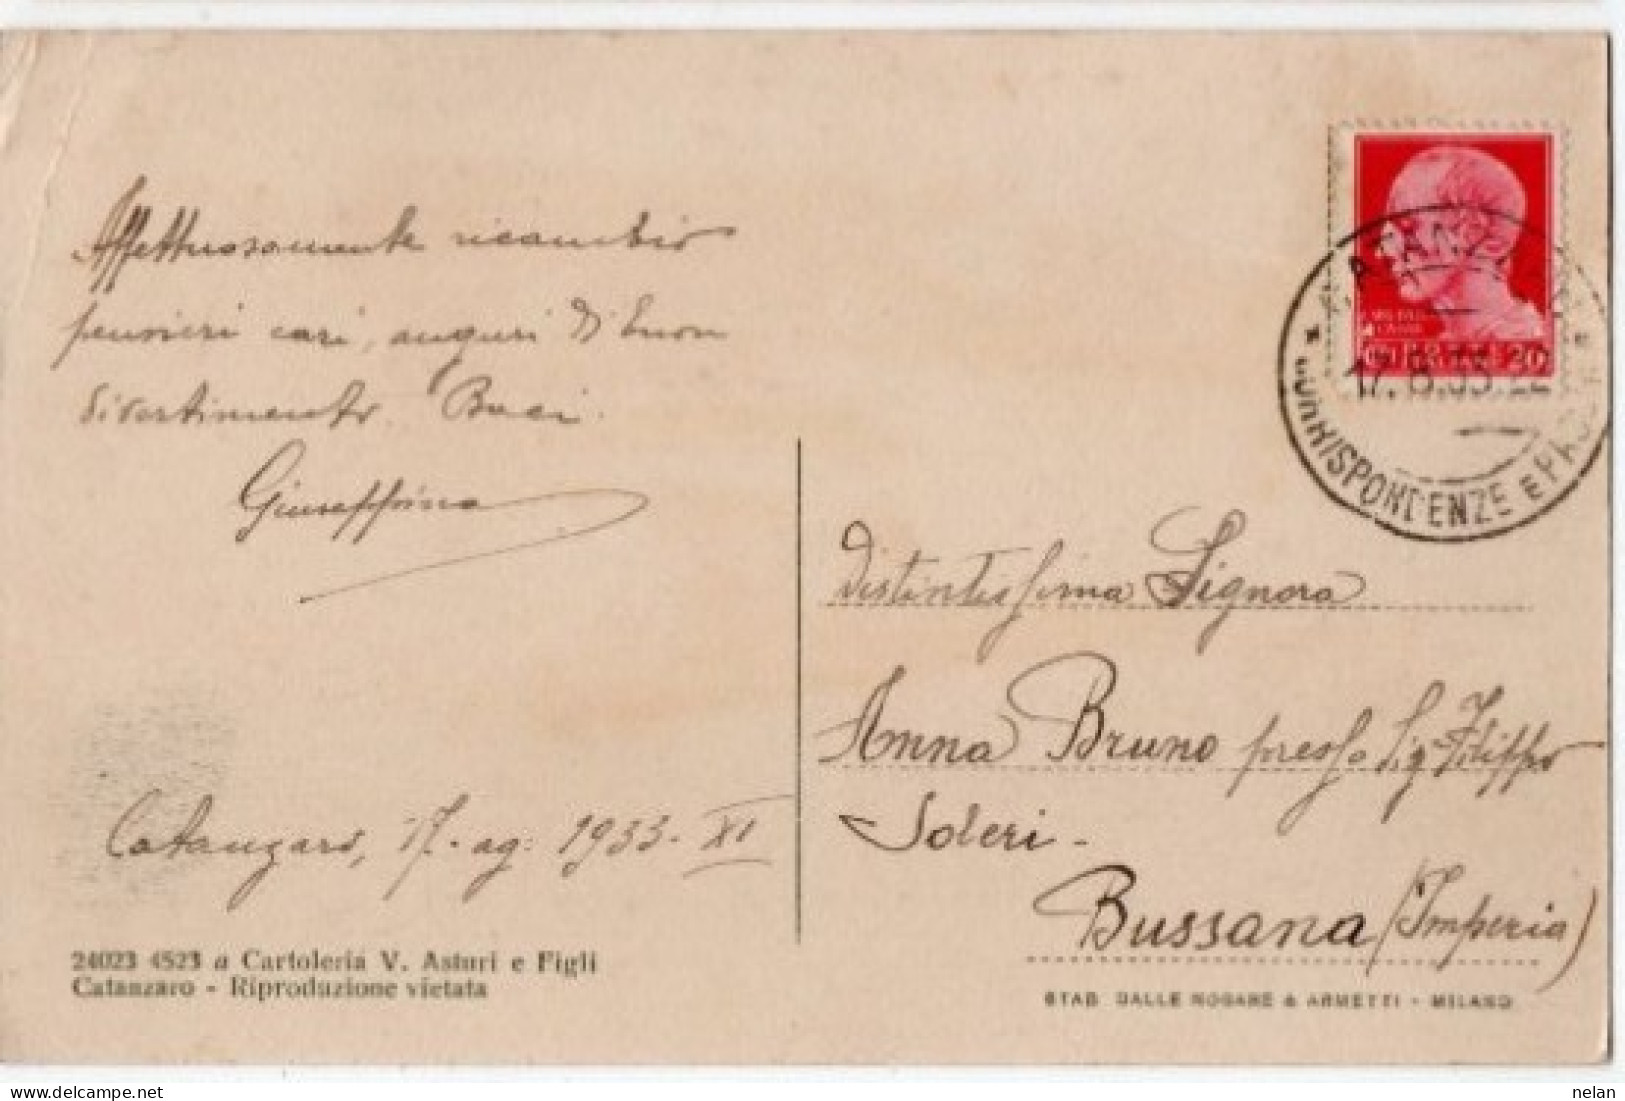 Affettuosamente ricambio
pensieri cari, auguri di buon
divertimento. Baci.
Giuseppina
Catanzaro, 17. ag. 1933 - XI
24023 4523 a Cartoleria V. Asturi e Figli
Catanzaro - Riproduzione vietata
CATANZARO
17.8.33.22
* CORRISPONDENZE E PACCHI *
POSTE ITALIANE
20
Distintissima Signora
Anna Bruno presso Sig. Filippo
Soleri -
Bussana (Imperia)
STAB. DALLE NOGARE & ARMETTI - MILANO
nelan